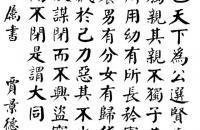 也天下為公選賢
為親其親不獨子其
所用幼有所長矜寡
養男有分女有歸貨
藏於己力惡其不出
故謀閉而不興盜竊
而不閉是謂大同
屬書 賈景德